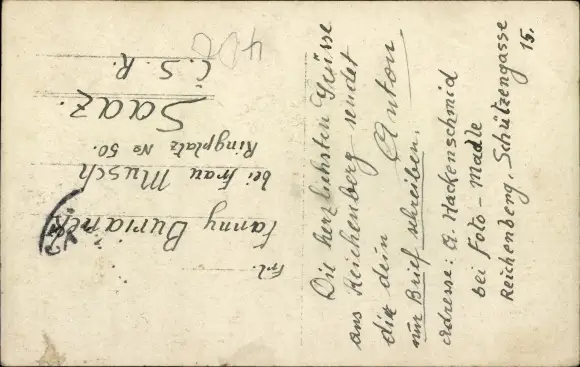 Die herzlichsten Grüsse
aus Reichenberg sendet
dir dein Anton.
nur Brief schreiben.
Adresse: A. Hackenschmid
bei Foto-Madle
Reichenberg, Schützengasse
15.
Frl.
Fanny Burianek
bei Frau Musch
Ringplatz No 50.
Saaz.
Č. S. R.
400